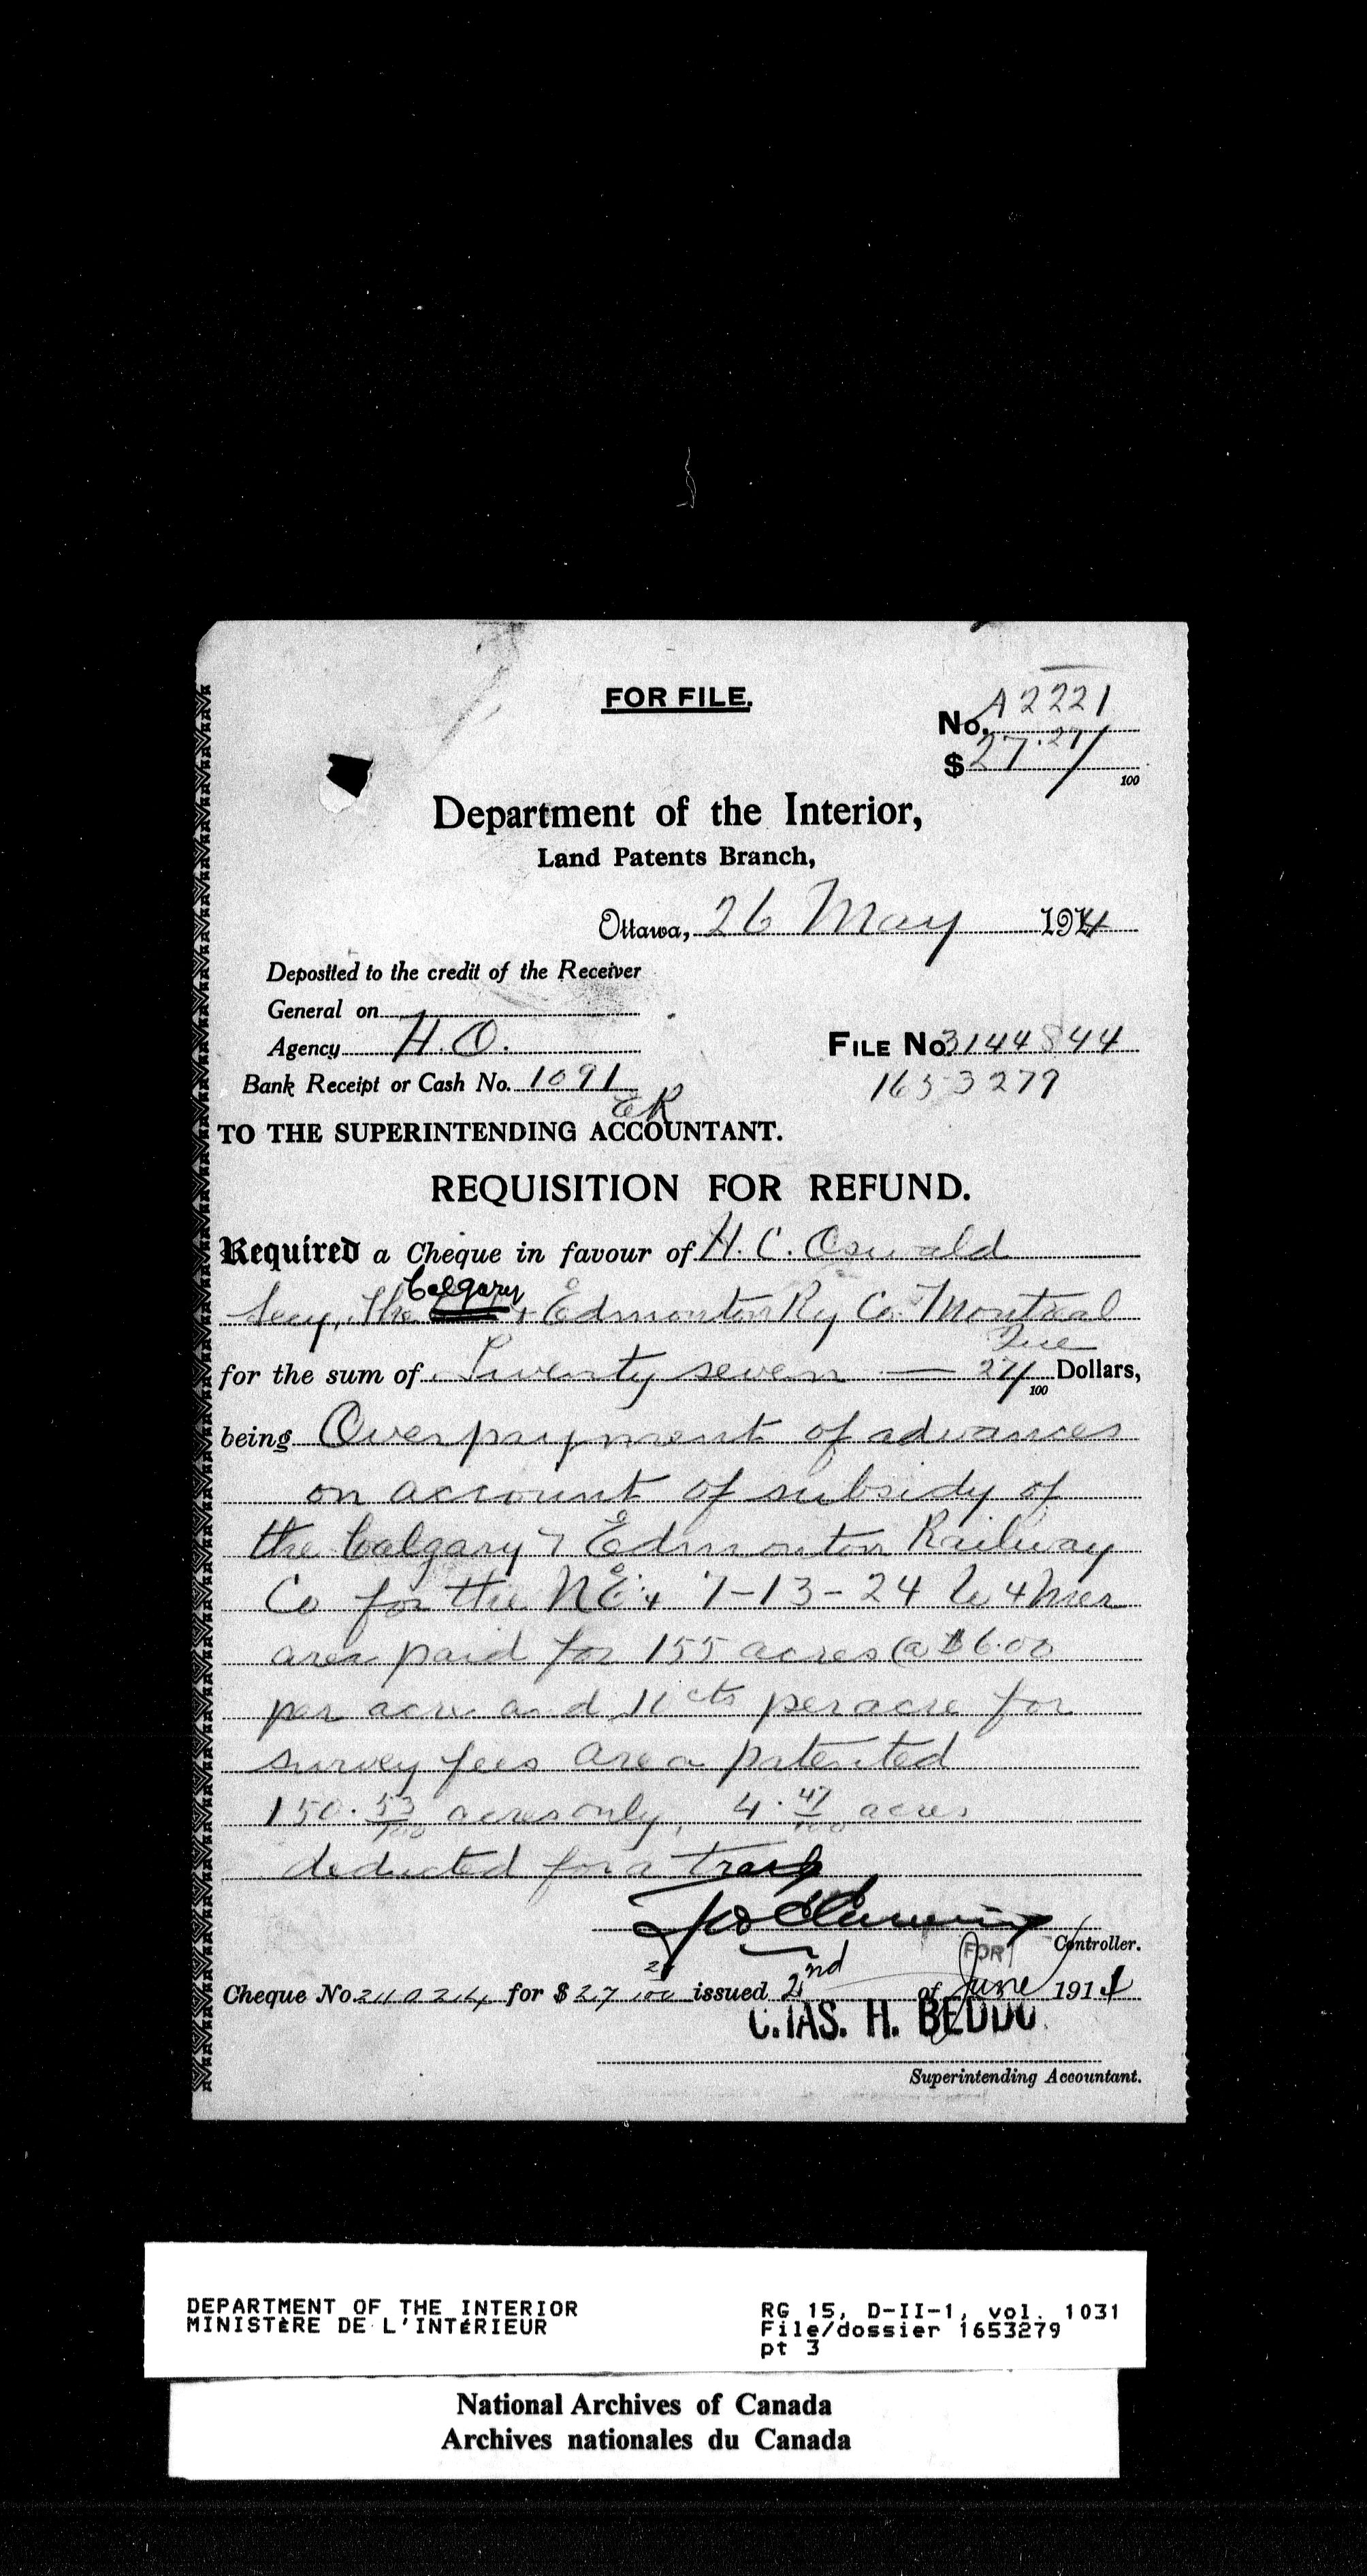 FOR FILE.
No. A2221
$ 27.27/100
Department of the Interior,
Land Patents Branch,
Ottawa, 26 May 1914
Deposited to the credit of the Receiver
General on
Agency H.O.
FILE No. 3144844
Bank Receipt or Cash No. 1091
1653279
ER
TO THE SUPERINTENDING ACCOUNTANT.
REQUISITION FOR REFUND.
Required a Cheque in favour of H. C. Oswald
Calgary
Secy, The & Edmonton Ry Co. Montreal
for the sum of Twenty seven — 27/100 Dollars,
being Overpayment of advances
on account of subsidy of
the Calgary & Edmonton Railway
Co for the NE¼ 7-13-24 W 4 Mer
area paid for 155 acres @ $6.00
per acre and 10 cts per acre for
survey fees area patented
150. 53/100 acres only, 4. 47/100 acres
deducted for a trail
FOR Controller.
Cheque No. 211024 for $27 27/100 issued 2nd of June 1914
CHAS. H. BEDDO
Superintending Accountant.
DEPARTMENT OF THE INTERIOR
MINISTÈRE DE L'INTÉRIEUR
RG 15, D-II-1, vol. 1031
File/dossier 1653279
pt 3
National Archives of Canada
Archives nationales du Canada